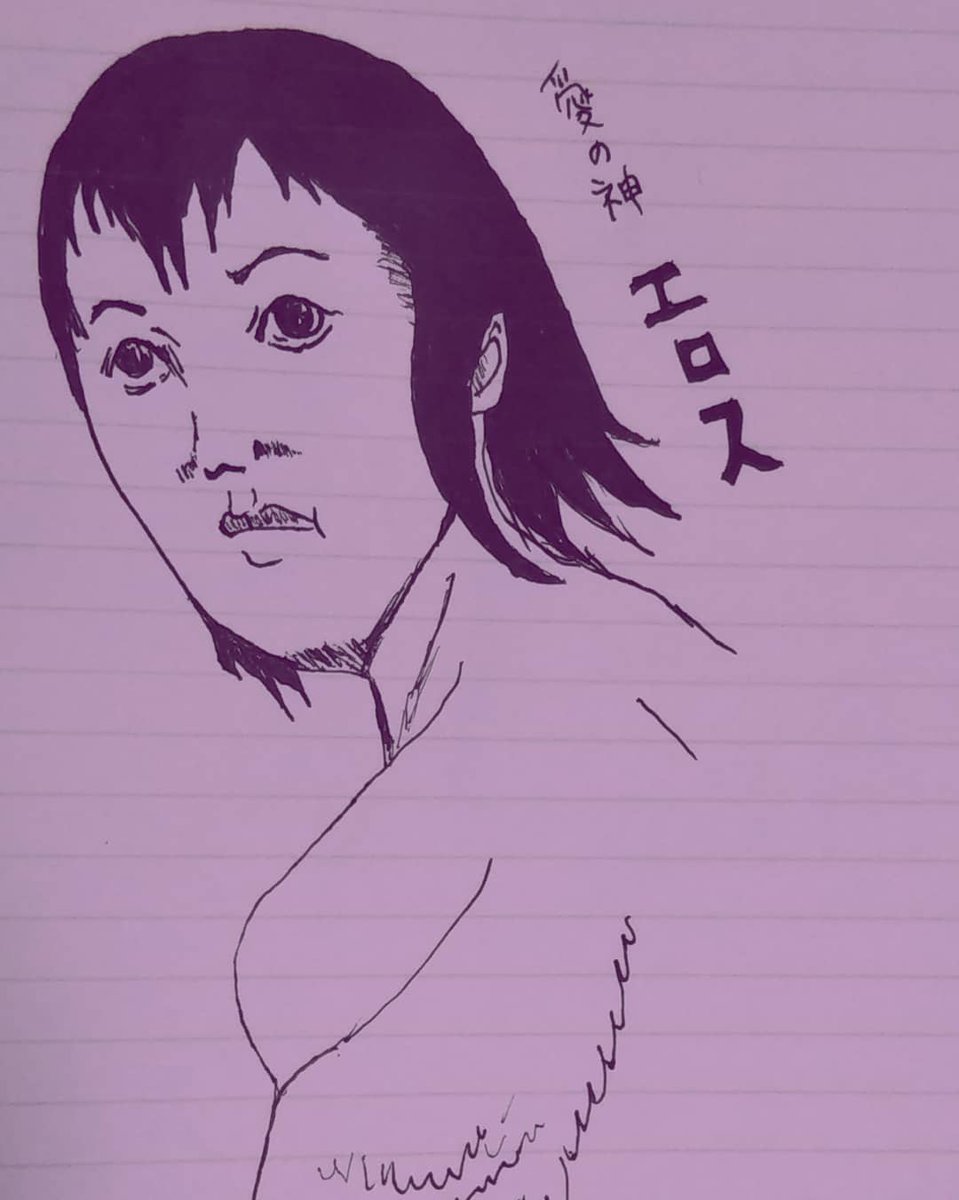 愛の神
エロス